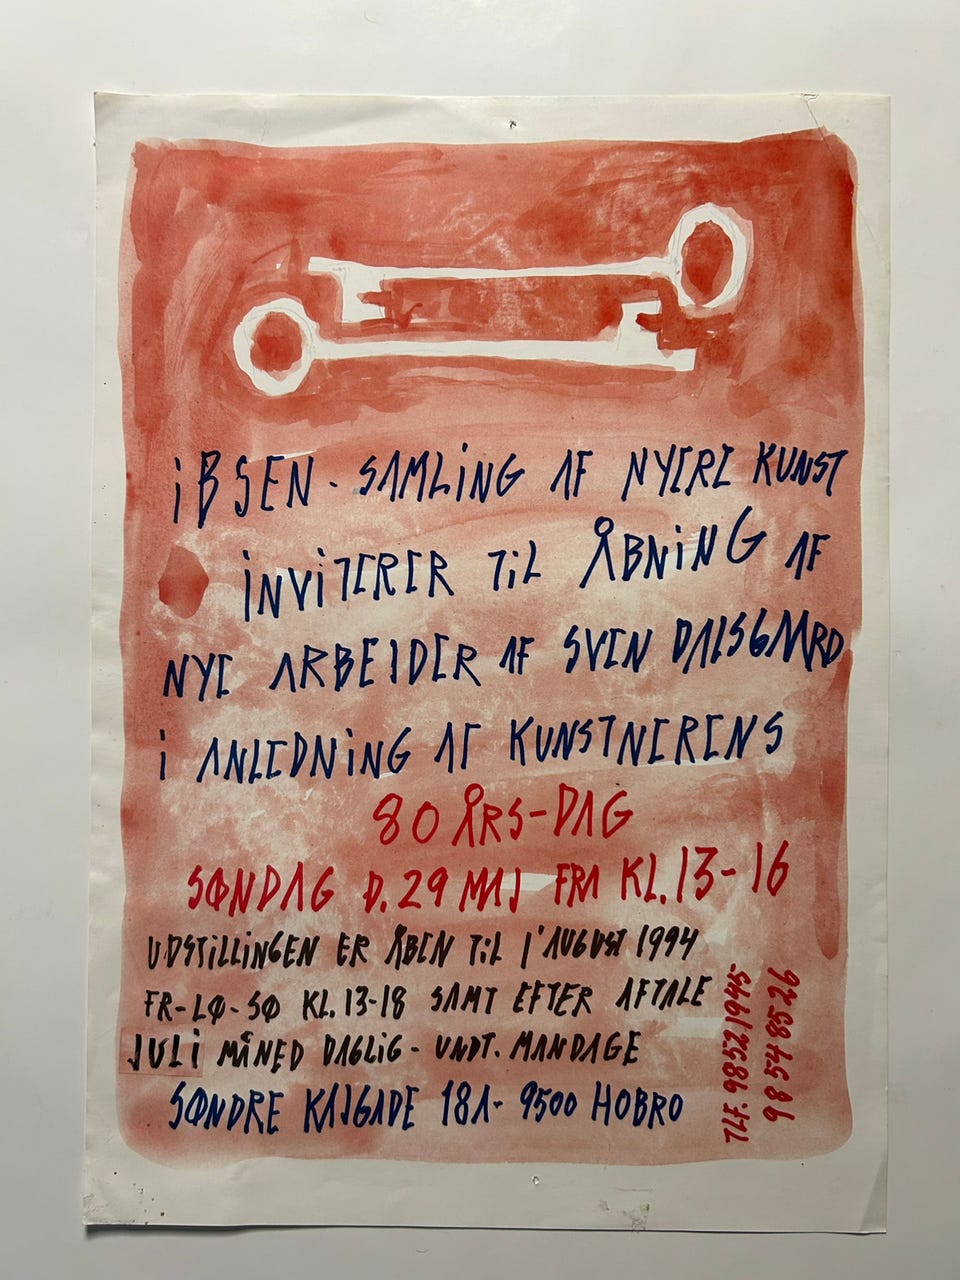 iBSEN - SAMLiNG AF NYERE KUNST
iNViTERER TiL ÅBNiNG AF
NYE ARBEJDER AF SVEN DALSGAARD
i ANLEDNiNG AF KUNSTNERENS
80 ÅRS-DAG
SØNDAG D. 29 MAJ FRA KL. 13-16
UDSTiLLiNGEN ER ÅBEN TiL 1' AUGUST 1994
FR-LØ-SØ KL. 13-18 SAMT EFTER AFTALE
JULi MÅNED DAGLiG - UNDT. MANDAGE
SØNDRE KAJGADE 18A - 9500 HOBRO
TLF. 98521945
98548526